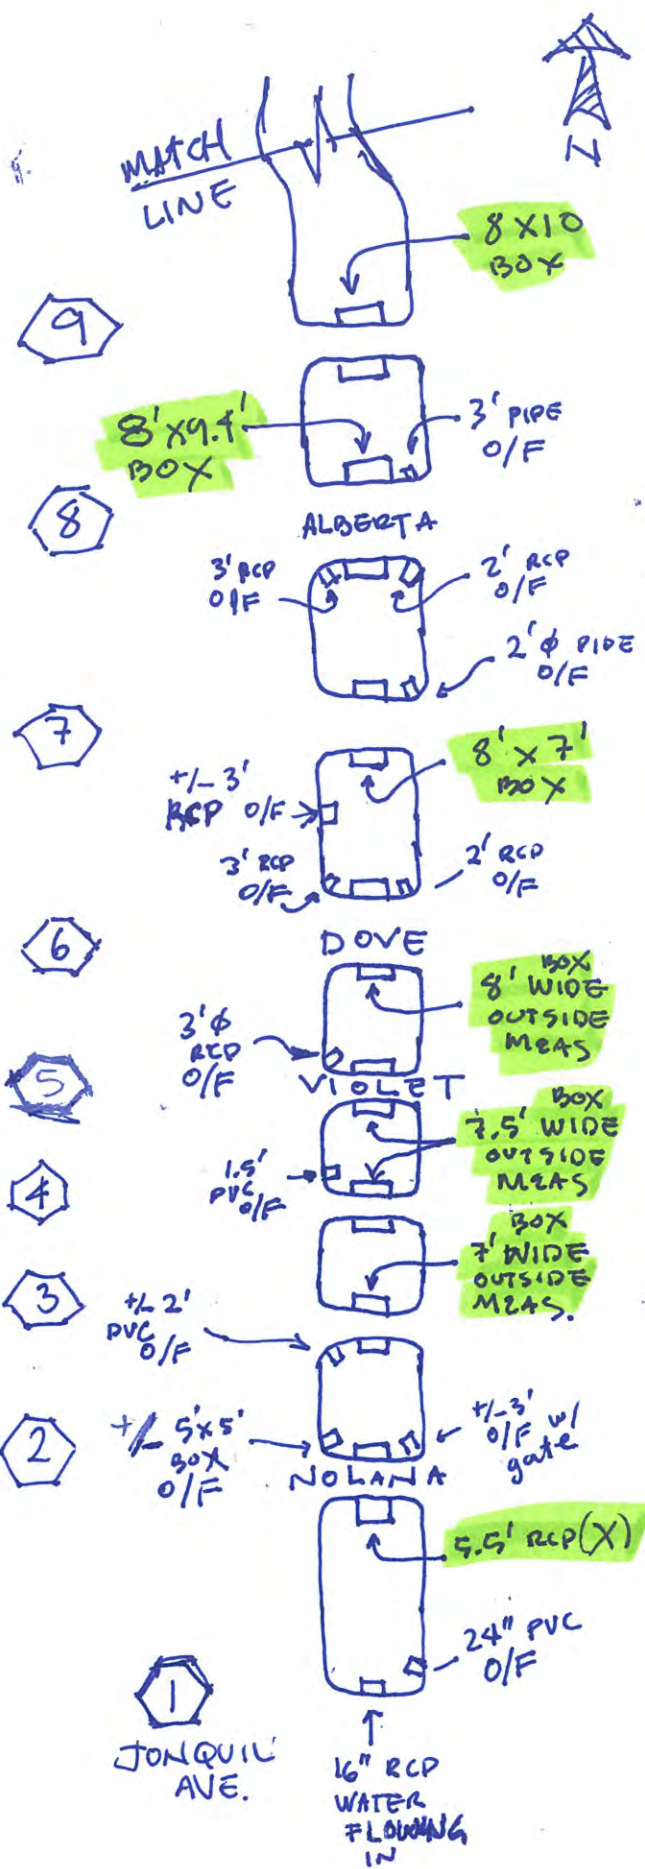 N
MATCH
LINE
8 X 10
BOX
9
8' X 9.4'
BOX
3' PIPE
O/F
8
ALBERTA
3' RCP
O/F
2' RCP
O/F
2' φ PIPE
O/F
7
8' x 7'
BOX
+/- 3'
RCP O/F
3' RCP
O/F
2' RCP
O/F
6
DOVE
BOX
8' WIDE
OUTSIDE
MEAS
3' φ
RCP
O/F
5
VIOLET
BOX
7.5' WIDE
OUTSIDE
MEAS
1.5'
PVC
O/F
4
BOX
7' WIDE
OUTSIDE
MEAS.
3
+/- 2'
PVC
O/F
2
+/- 5'x5'
BOX
O/F
+/- 3'
O/F w/
gate
NOLANA
5.5' RCP (X)
24" PVC
O/F
1
JONQUIL
AVE.
16" RCP
WATER
FLOWING
IN